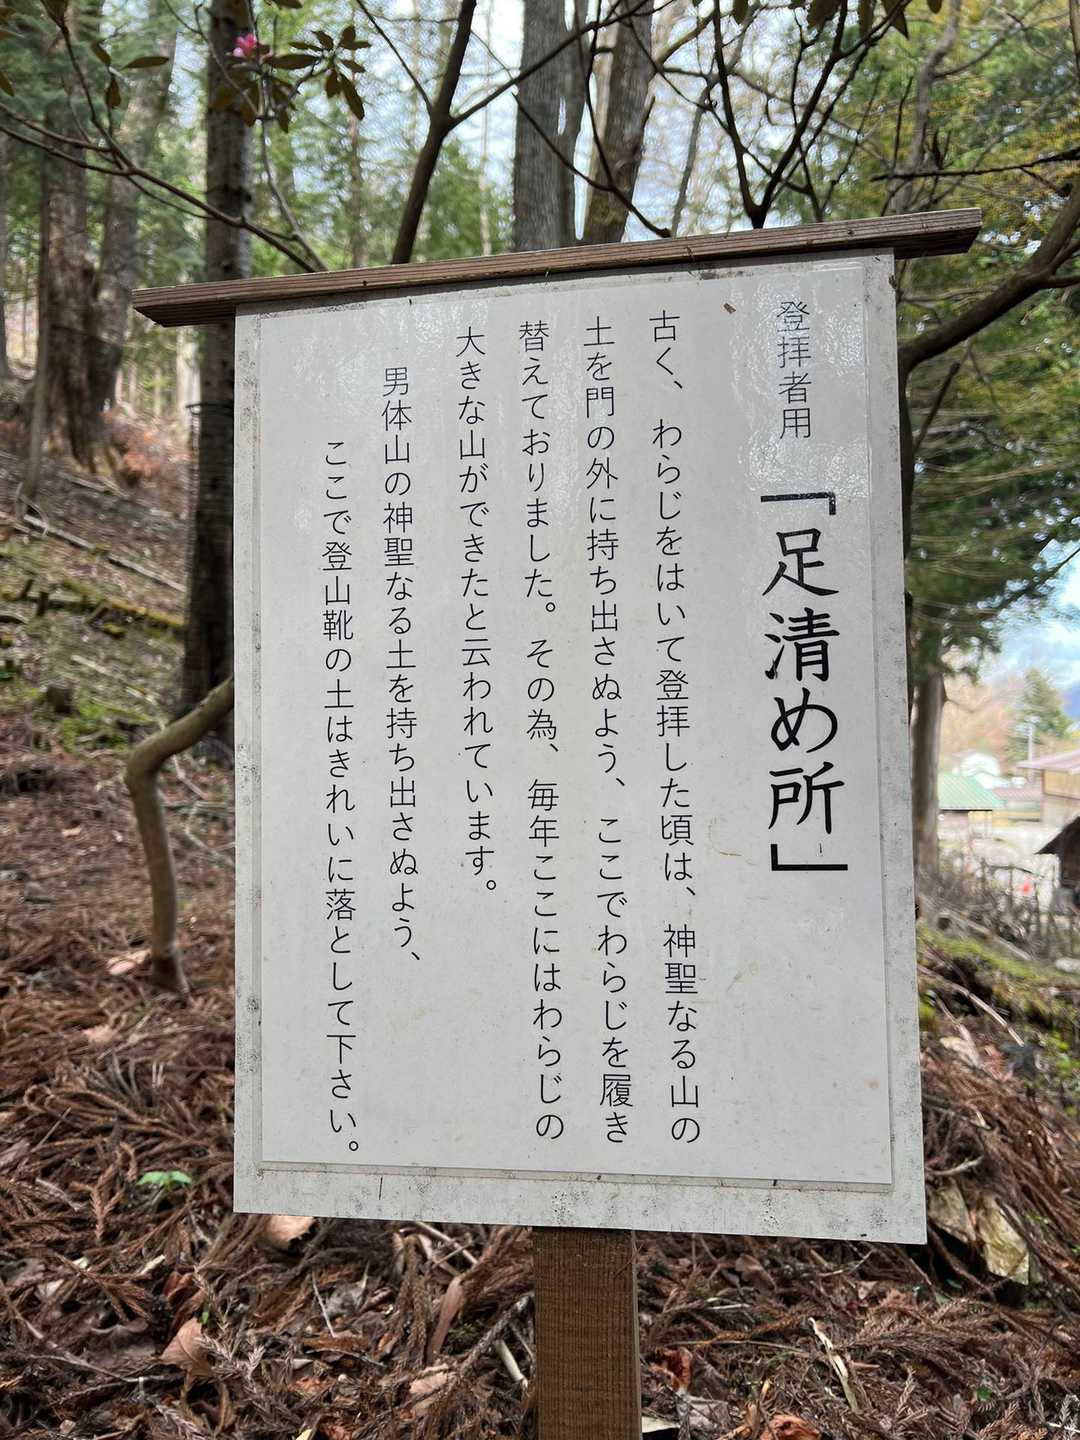 登拝者用 「足清め所」
古く、わらじをはいて登拝した頃は、神聖なる山の
土を門の外に持ち出さぬよう、ここでわらじを履き
替えておりました。その為、毎年ここにはわらじの
大きな山ができたと云われています。
男体山の神聖なる土を持ち出さぬよう、
ここで登山靴の土はきれいに落として下さい。